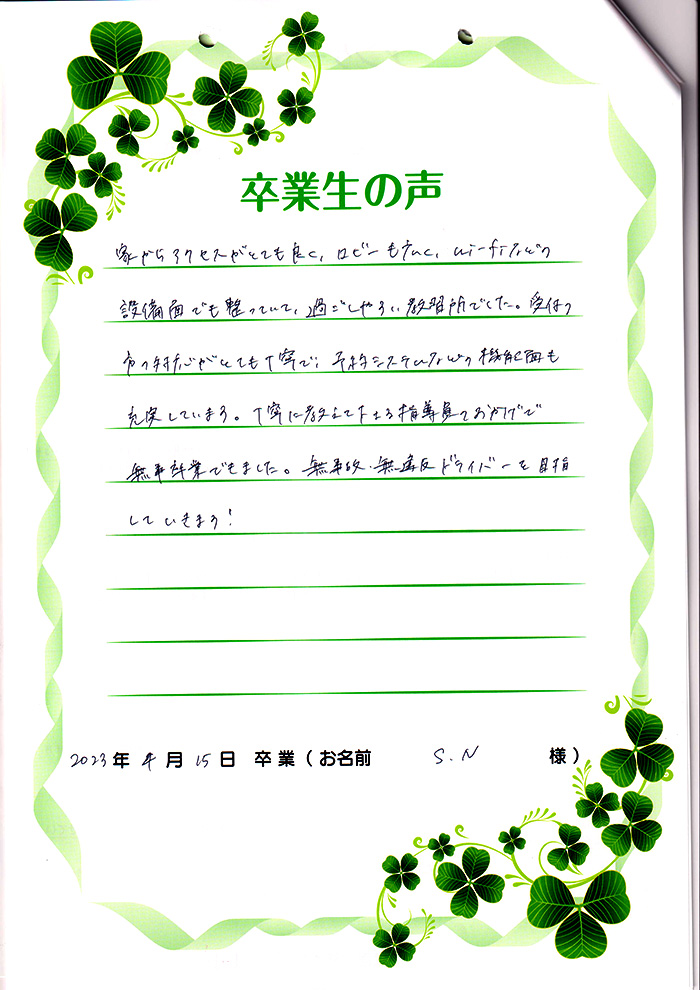 卒業生の声
家からアクセスがとても良く、ロビーも広く、wi-fiなどの
設備面でも整っていて、過ごしやすい教習所でした。受付の
方の対応がとても丁寧で、予約システムなどの機能面も
充実しています。丁寧に教えて下さる指導員のおかげで
無事卒業できました。無事故・無違反ドライバーを目指
していきます!
2023年 4月 15日 卒業(お名前 S.N 様)